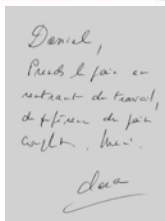 Daniel,
Prends le pain en
rentrant du travail,
de préférence du pain
complet. Merci.
Clara